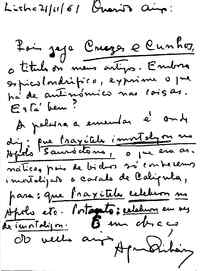 Lisboa 21/11/61 Querido amigo:
Pois seja Cruzes e Cunhos,
o título os meus artigos. Embora
, exprime o que
há de antinómico nas coisas.
Está bem?
A palavra a emendar é onde
diz: que Praxíteles imortalizou no
Apolo Sauróctono, o que era as-
pois de bichos só conhecemos
imortalizado o cavalo de Calígula,
para: que Praxíteles celebrou no
Apolo etc. Portanto: celebrou em vez
de imortalizou. E um abraço
do velho amigo